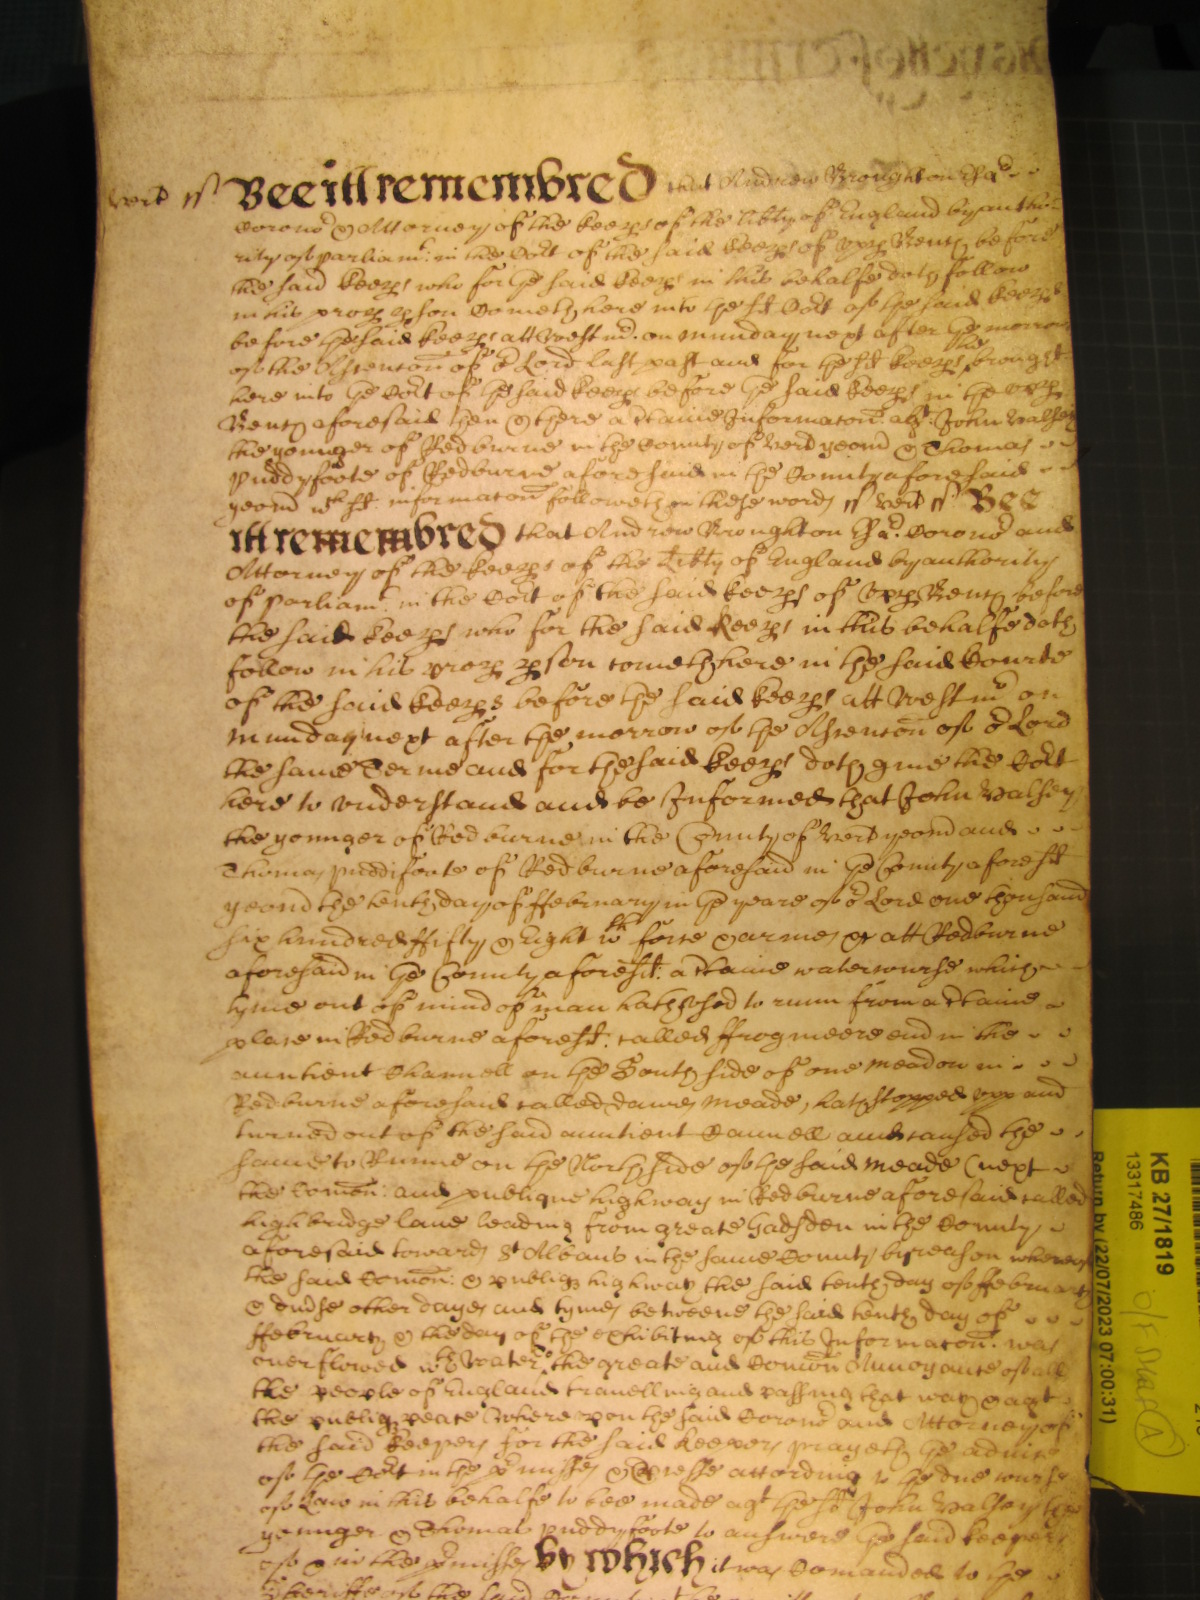 Bee itt remembred that Andrew Broughton
Corono' & Attorney of the keep's of the lib'ty of England by autho
rity of parliamt: in the Co'rt of the said keep's of Upp' Bench before
the said keep's who for the said keep's in this behalfe doth follow
in his prop' p'son cometh here into the sd Co'rt of the said keep's
before the said keep's att Westm' on munday next after the morrow
of the Assencon of o' Lord last past and for the sd keep's brought
here into the Co'rt of the said keep's before the said keep's in the Upp'
Bench aforesaid then & there a c'taine Informacon agt John Halsey
the younger of Redburne in the County of Hertf yeom' & Thomas
Puddyfoote of Redburne aforesaid in the County aforesaid
yeom' wch sd informacon followeth in these words ss Hertf ss Bee
itt remembred that Andrew Broughton Corono' and
Attorney of the keep's of the Lib'ty of England by authority
of Parliamt in the Co'rt of the said keep's of Upp' Bench before
the said keep's who for the said keep's in this behalfe doth
follow in his prop' p'son cometh here in the said Courte
of the said keep's before the said keep's att Westm' on
munday next after the morrow of the Assencon of o' Lord
the same Terme and for the said keep's doth give the Co'rt
here to understand and be Informed that John Halsey
the younger of Redburne in the County of Hertf yeom' and
Thomas Puddifoote of Redburne aforesaid in the County aforesd
yeom' the tenth day of ffebruary in the yeare of o' Lord one thousand
six hundred ffifty & Eight wth force & armes &c att Redburne
aforesaid in the County aforesd: a c'taine watercourse which
tyme out of mind of man hath used to runn from a c'taine
place in Redburne aforesd: called ffrogmeere end in the
auntient Channell on the South side of one meadow in
Redburne aforesaid called Dawes Meade, hath stopped upp and
turned out of the said auntient Cannell and caused the
same to Runne on the North side of the said meade (next
the Comon: and publique highway in Redburne aforesaid called
high bridge lane leading from greate Gadsden in the County
aforesaid towards St Albans in the same County by reason whereof
the said Comon: & publiq' highway the said tenth day of ffebruary
& div'se other dayes and tymes betweene the said tenth day of
ffebruary & the day of the exhibiting of this Informacon: was
overflowed wth Water to the greate and Comon Annoyance of all
the people of England travelling and passing that way & agt
the publiq' peace Whereupon the said Corono' and Attorney of
the said keepers for the said keepers prayeth the advice
of the Co'rt in the p'misses & p'cesse according to the due course
of Law in this behalfe to bee made agt the sd John Halsey the
younger & Thomas Puddyfoote to answere the said keepers
of & in the p'misses by which it was Comanded to the
Sheriffe of the said County
KB 27/1819
13317486
Return by (22/07/2023 07:00:31)